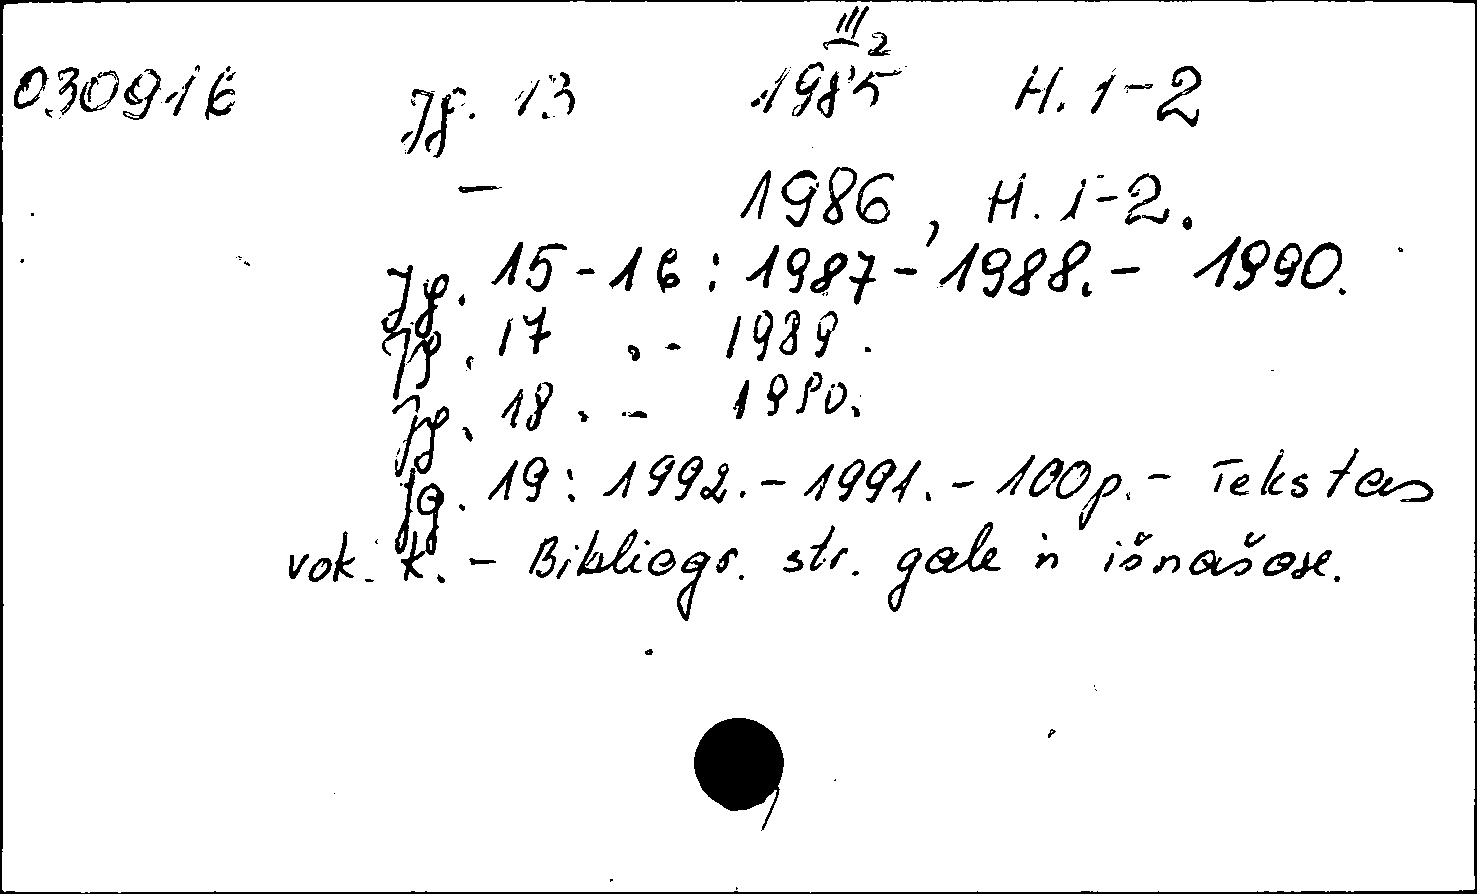 III 2
030916 Jg. 13 1985 H. 1-2
— 1986, H. 1-2.
Jg. 15-16: 1987-1988. - 1990.
Jg. 17 . - 1989.
Jg. 18. - 1990.
Jg. 19: 1992. - 1991. - 100p. - Tekstas
vok. k. - Bibliogr. str. gale ir išnašose.